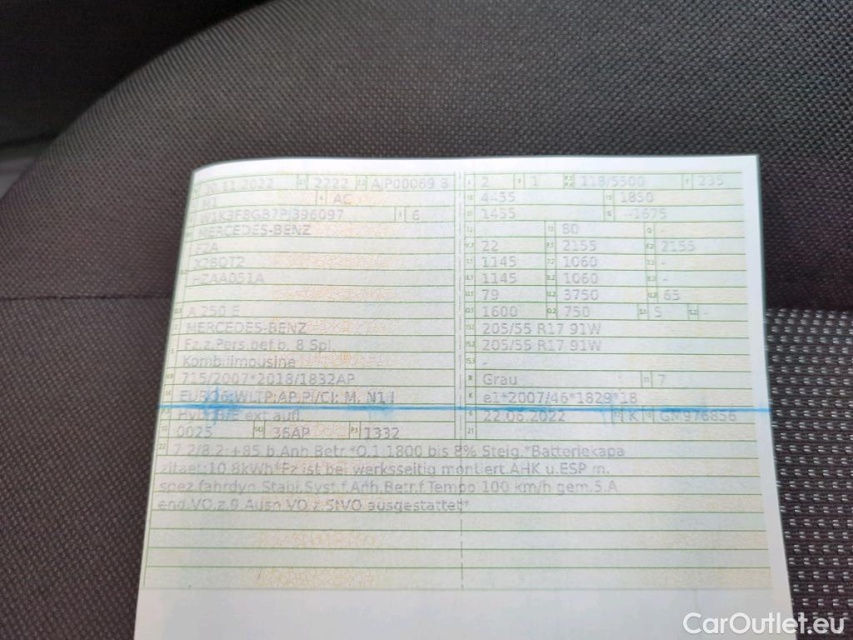 30.11.2022 2222 AJP00069 8 2 1 118/5500 235
M1 AC 4455 1850
W1K3F8GB7PJ396097 6 1455 --1675
MERCEDES-BENZ 80 -
F2A 22 2155 2155
XZB0T2 1145 1060 -
HZAA051A 1145 1060 -
79 3750 65
A 250 E 1600 750 5 -
MERCEDES-BENZ 205/55 R17 91W
Fz.z.Pers.bef.b. 8 Spl. 205/55 R17 91W
Kombilimousine -
715/2007*2018/1832AP Grau 7
EURO6;WLTP;AP,PI/CI; M, N1 I e1*2007/46*1829*18
Hybr.B/E ext.aufl. 22.06.2022 K GN976856
0025 36AP 1332
7.2/8.2:+85 b.Anh.Betr.*O.1:1800 bis 8% Steig.*Batteriekapa
zitaet:10,8kWh*Fz ist bei werksseitig montiert.AHK u.ESP m.
spez.fahrdyn.Stabi.Syst.f.Anh.Betr.f.Tempo 100 km/h gem.5.A
end.VO.z.9.Ausn.VO.z.StVO ausgestattet*
CarOutlet.eu